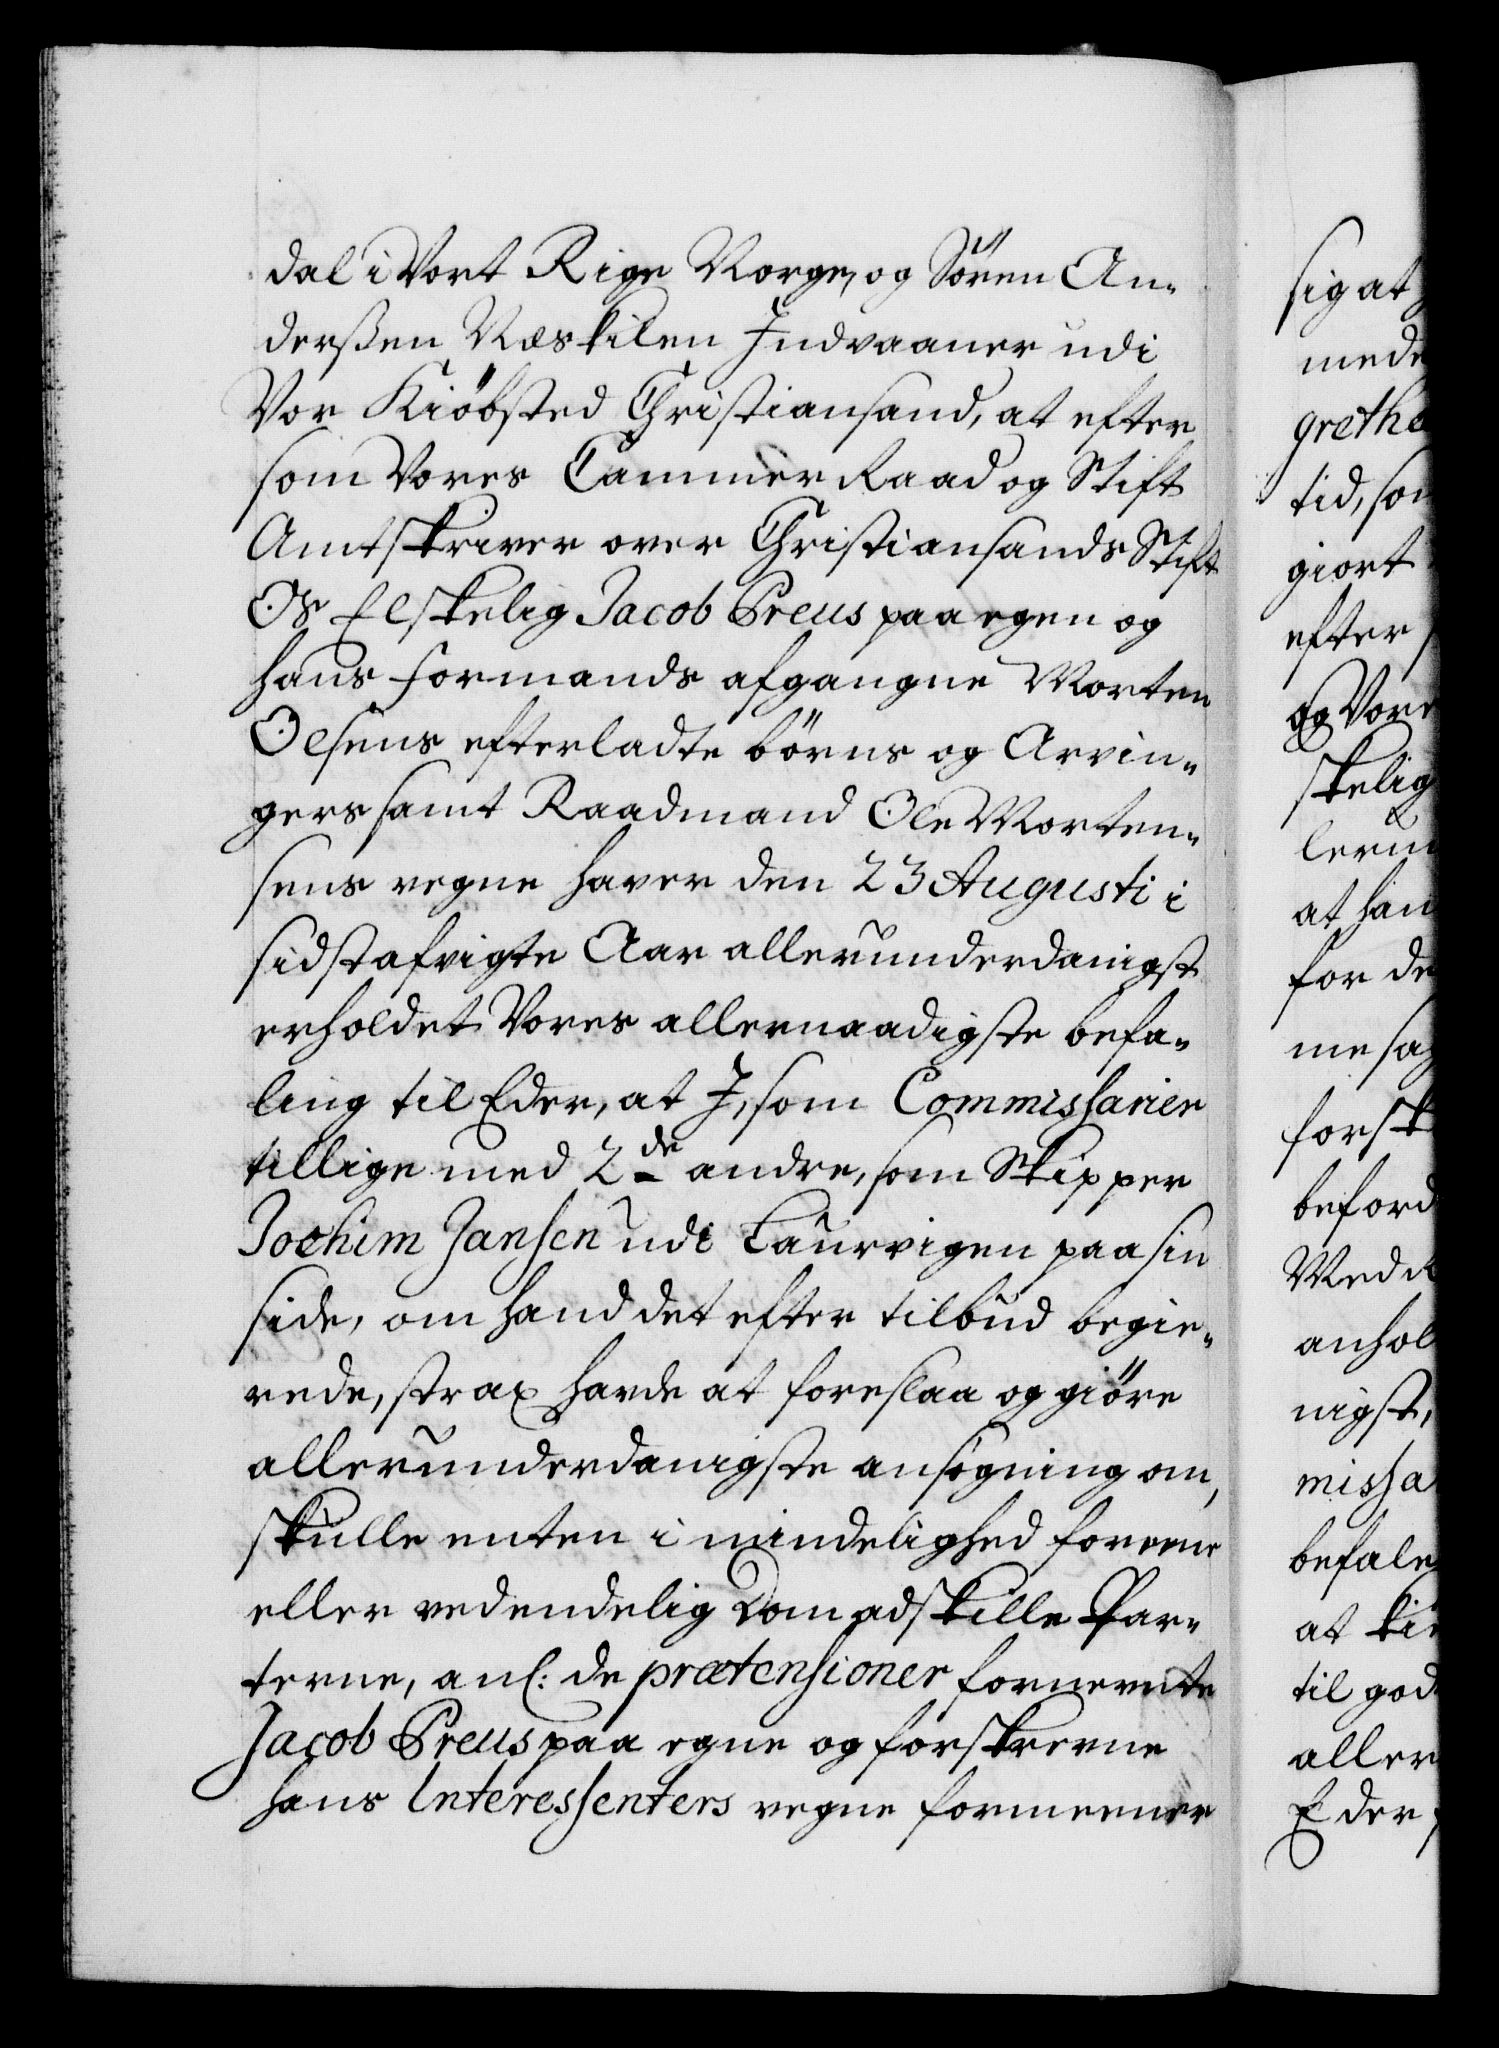 dal i Vort Rige Norge, og Sören An-
derßen Næskilen Indvaaner udi
Vor Kiöbsted Christiansand, at efter
som Vores Cammer Raad og Stift
Amtskriver over Christiansands Stift
Os Elskelig Jacob Preus paa egen og
hans formands afgangne Morten
Olsens efterladte börns og Arvin-
gers samt Raadmand Ole Morten-
sens vegne haver den 23 Augusti i
sidstafvigte Aar allerunderdanigst
erholdet Vores allernaadigste befa-
ling til Eder, at I, som Commissarier
tillige med 2de andre, som Skipper
Jochim Jansen udi Laurvigen paa sin
side, om hand det efter tilbud begie-
rede, strax havde at foreslaa og giöre
allerunderdanigste ansögning om,
skulle enten i mindelighed foreene
eller ved endelig Dom adskille Par-
terne, anl: de prætensioner fornevnte
Jacob Preus paa egne og forskrevne
hans Interessenters vegne formeener
sig at
mede
grethe
tid, som
giort
efter
og Vore
skelig
lerun
at han
for de
me sag
forsk
beford
Med R
anhol
nigst,
missa
befale
at kie
til god
aller
Eder